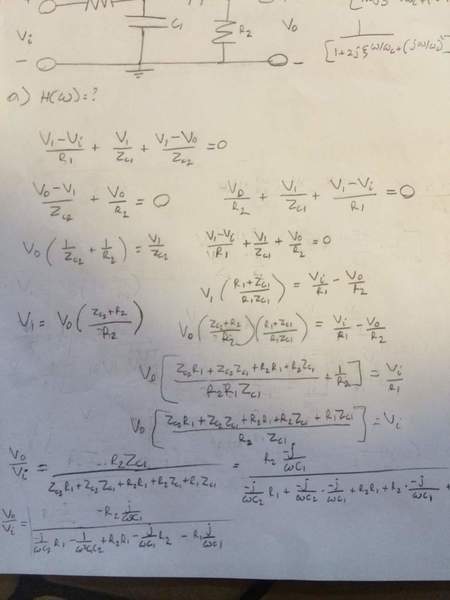 C1
Vi
R2
Vo
1
[1+2jξω/ωc+(jω/ωc)²]
a) H(ω)=?
(V1-Vi)/R1 + V1/Zc1 + (V1-V0)/Zc2 = 0
(V0-V1)/Zc2 + V0/R2 = 0
V0/R2 + V1/Zc1 + (V1-Vi)/R1 = 0
V0(1/Zc2 + 1/R2) = V1/Zc2
(V1-Vi)/R1 + V1/Zc1 + V0/R2 = 0
V1((R1+Zc1)/(R1Zc1)) = Vi/R1 - V0/R2
V1 = V0((Zc2+R2)/R2)
V0((Zc2+R2)/R2)((R1+Zc1)/(R1Zc1)) = Vi/R1 - V0/R2
V0[(Zc2R1+Zc2Zc1+R2R1+R2Zc1)/(R2R1Zc1) + 1/R2] = Vi/R1
V0[(Zc2R1+Zc2Zc1+R2R1+R2Zc1+R1Zc1)/(R2 Zc1)] = Vi
V0/Vi = R2Zc1/(Zc2R1+Zc2Zc1+R2R1+R2Zc1+R1Zc1) = (R2 -j/ωC1)/(-j/ωC2 R1 + -j/ωC2 · -j/ωC1 + R2R1 + R2 · -j/ωC1 +
V0/Vi = (-R2 j/ωC1)/(-j/ωC2 R1 - 1/ω²C1C2 + R2R1 - j/ωC1 R2 - R1 j/ωC1)